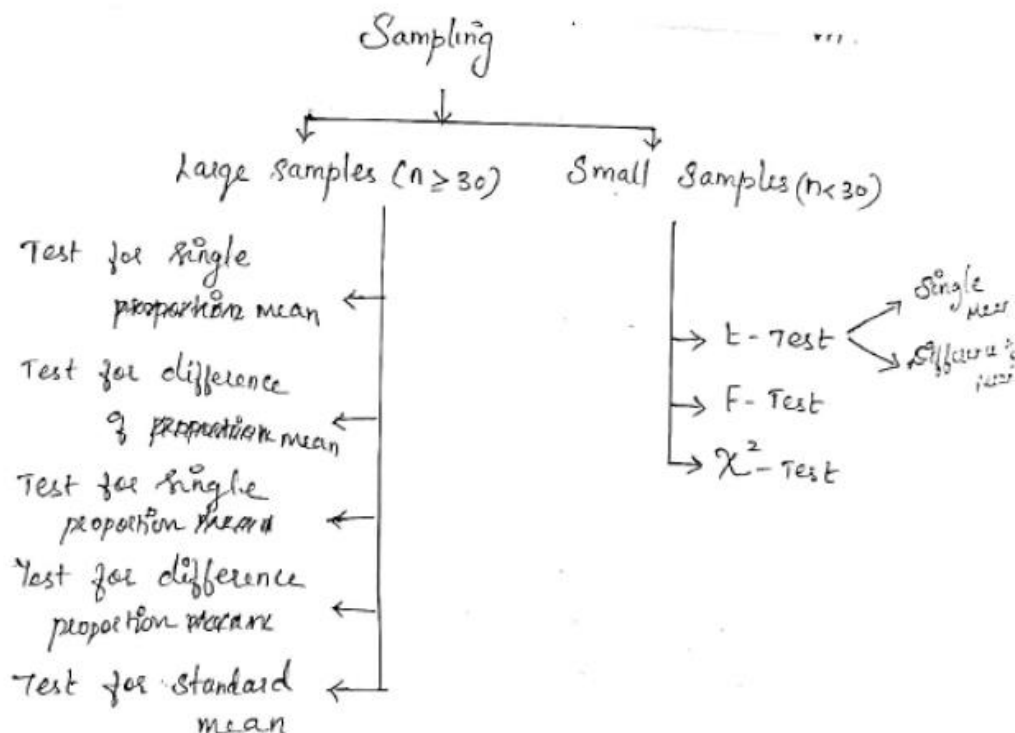 Sampling
Large samples (n ≥ 30)
Small samples (n < 30)
Test for single
mean
Test for difference
of mean
Test for single
proportion
Test for difference
proportion
Test for standard
mean
t - Test
Single
Difference
F - Test
χ² - Test